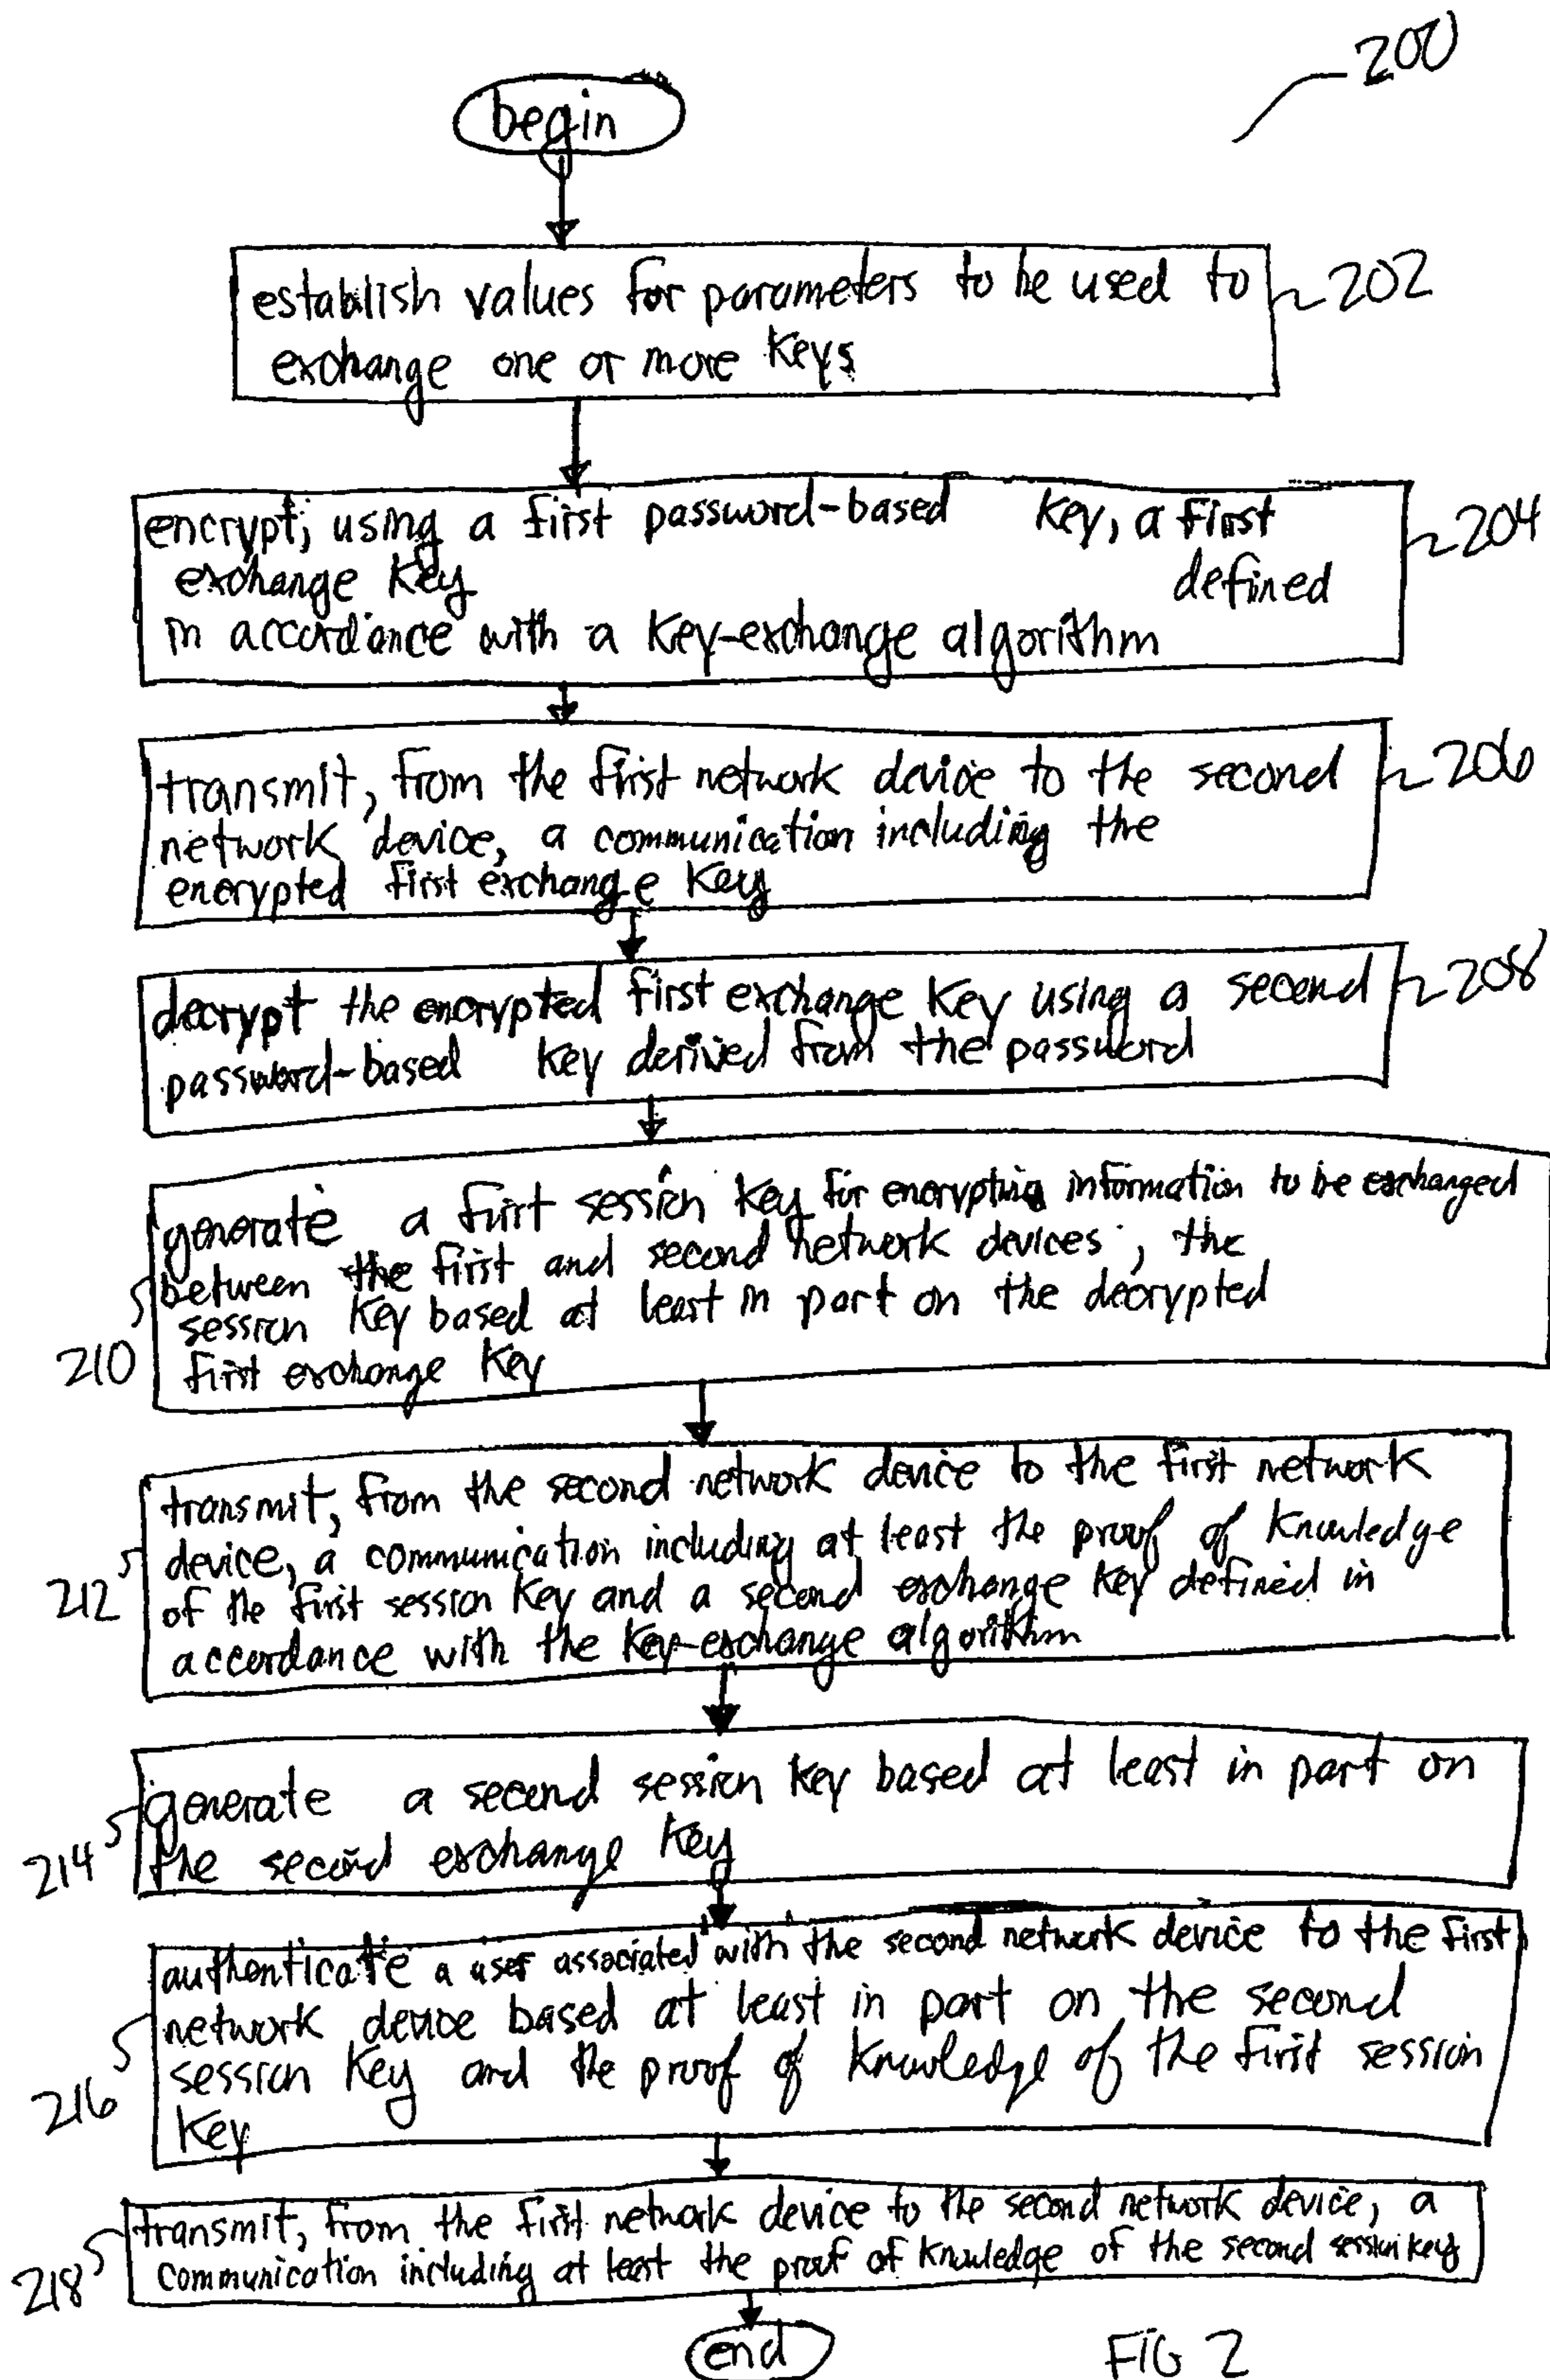 200
begin
establish values for parameters to be used to
exchange one or more keys
202
encrypt, using a first password-based key, a first
exchange key defined
in accordance with a key-exchange algorithm
204
transmit, from the first network device to the second
network device, a communication including the
encrypted first exchange key
206
decrypt the encrypted first exchange key using a second
password-based key derived from the password
208
generate a first session key for encrypting information to be exchanged
between the first and second network devices, the
session key based at least in part on the decrypted
first exchange key
210
transmit, from the second network device to the first network
device, a communication including at least the proof of knowledge
of the first session key and a second exchange key defined in
accordance with the key-exchange algorithm
212
generate a second session key based at least in part on
the second exchange key
214
authenticate a user associated with the second network device to the first
network device based at least in part on the second
session key and the proof of knowledge of the first session
key
216
transmit, from the first network device to the second network device, a
communication including at least the proof of knowledge of the second session key
218
end
FIG 2